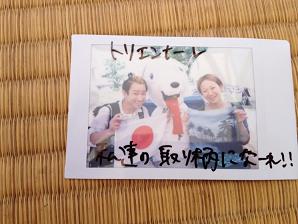 トリエンナーレ
私達の取り柄になーれ!!